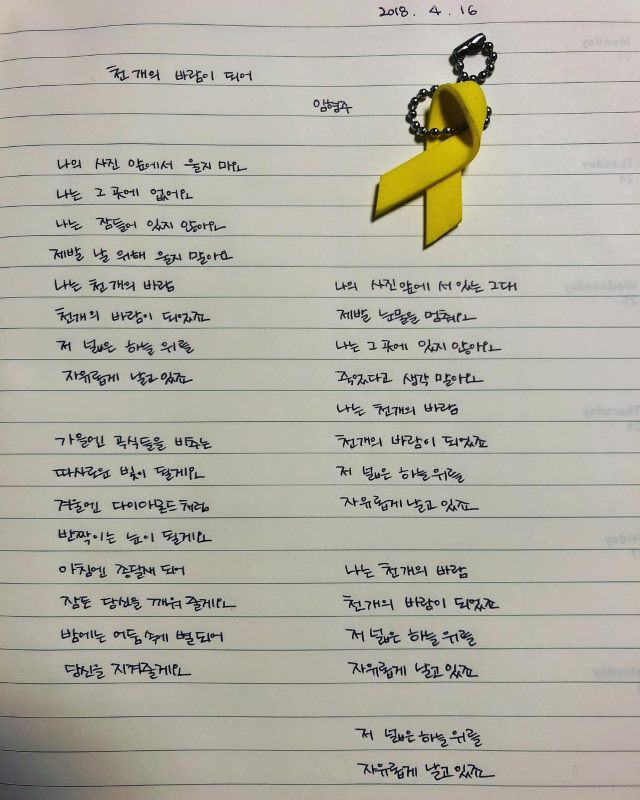 2018. 4. 16
천 개의 바람이 되어
임형주
나의 사진 앞에서 울지 마요
나는 그 곳에 없어요
나는 잠들어 있지 않아요
제발 날 위해 울지 말아요
나는 천 개의 바람
천개의 바람이 되었죠
저 넓은 하늘 위를
자유롭게 날고 있죠
가을엔 곡식들을 비추는
따사로운 빛이 될게요
겨울엔 다이아몬드처럼
반짝이는 눈이 될게요
아침엔 종달새 되어
잠든 당신을 깨워 줄게요
밤에는 어둠 속에 별 되어
당신을 지켜줄게요
나의 사진 앞에 서 있는 그대
제발 눈물을 멈춰요
나는 그 곳에 있지 않아요
죽었다고 생각 말아요
나는 천 개의 바람
천개의 바람이 되었죠
저 넓은 하늘 위를
자유롭게 날고 있죠
나는 천 개의 바람
천개의 바람이 되었죠
저 넓은 하늘 위를
자유롭게 날고 있죠
저 넓은 하늘 위를
자유롭게 날고 있죠
Monday
Tuesday
24
Wednesday
25
Thursday
26
Friday
Saturday